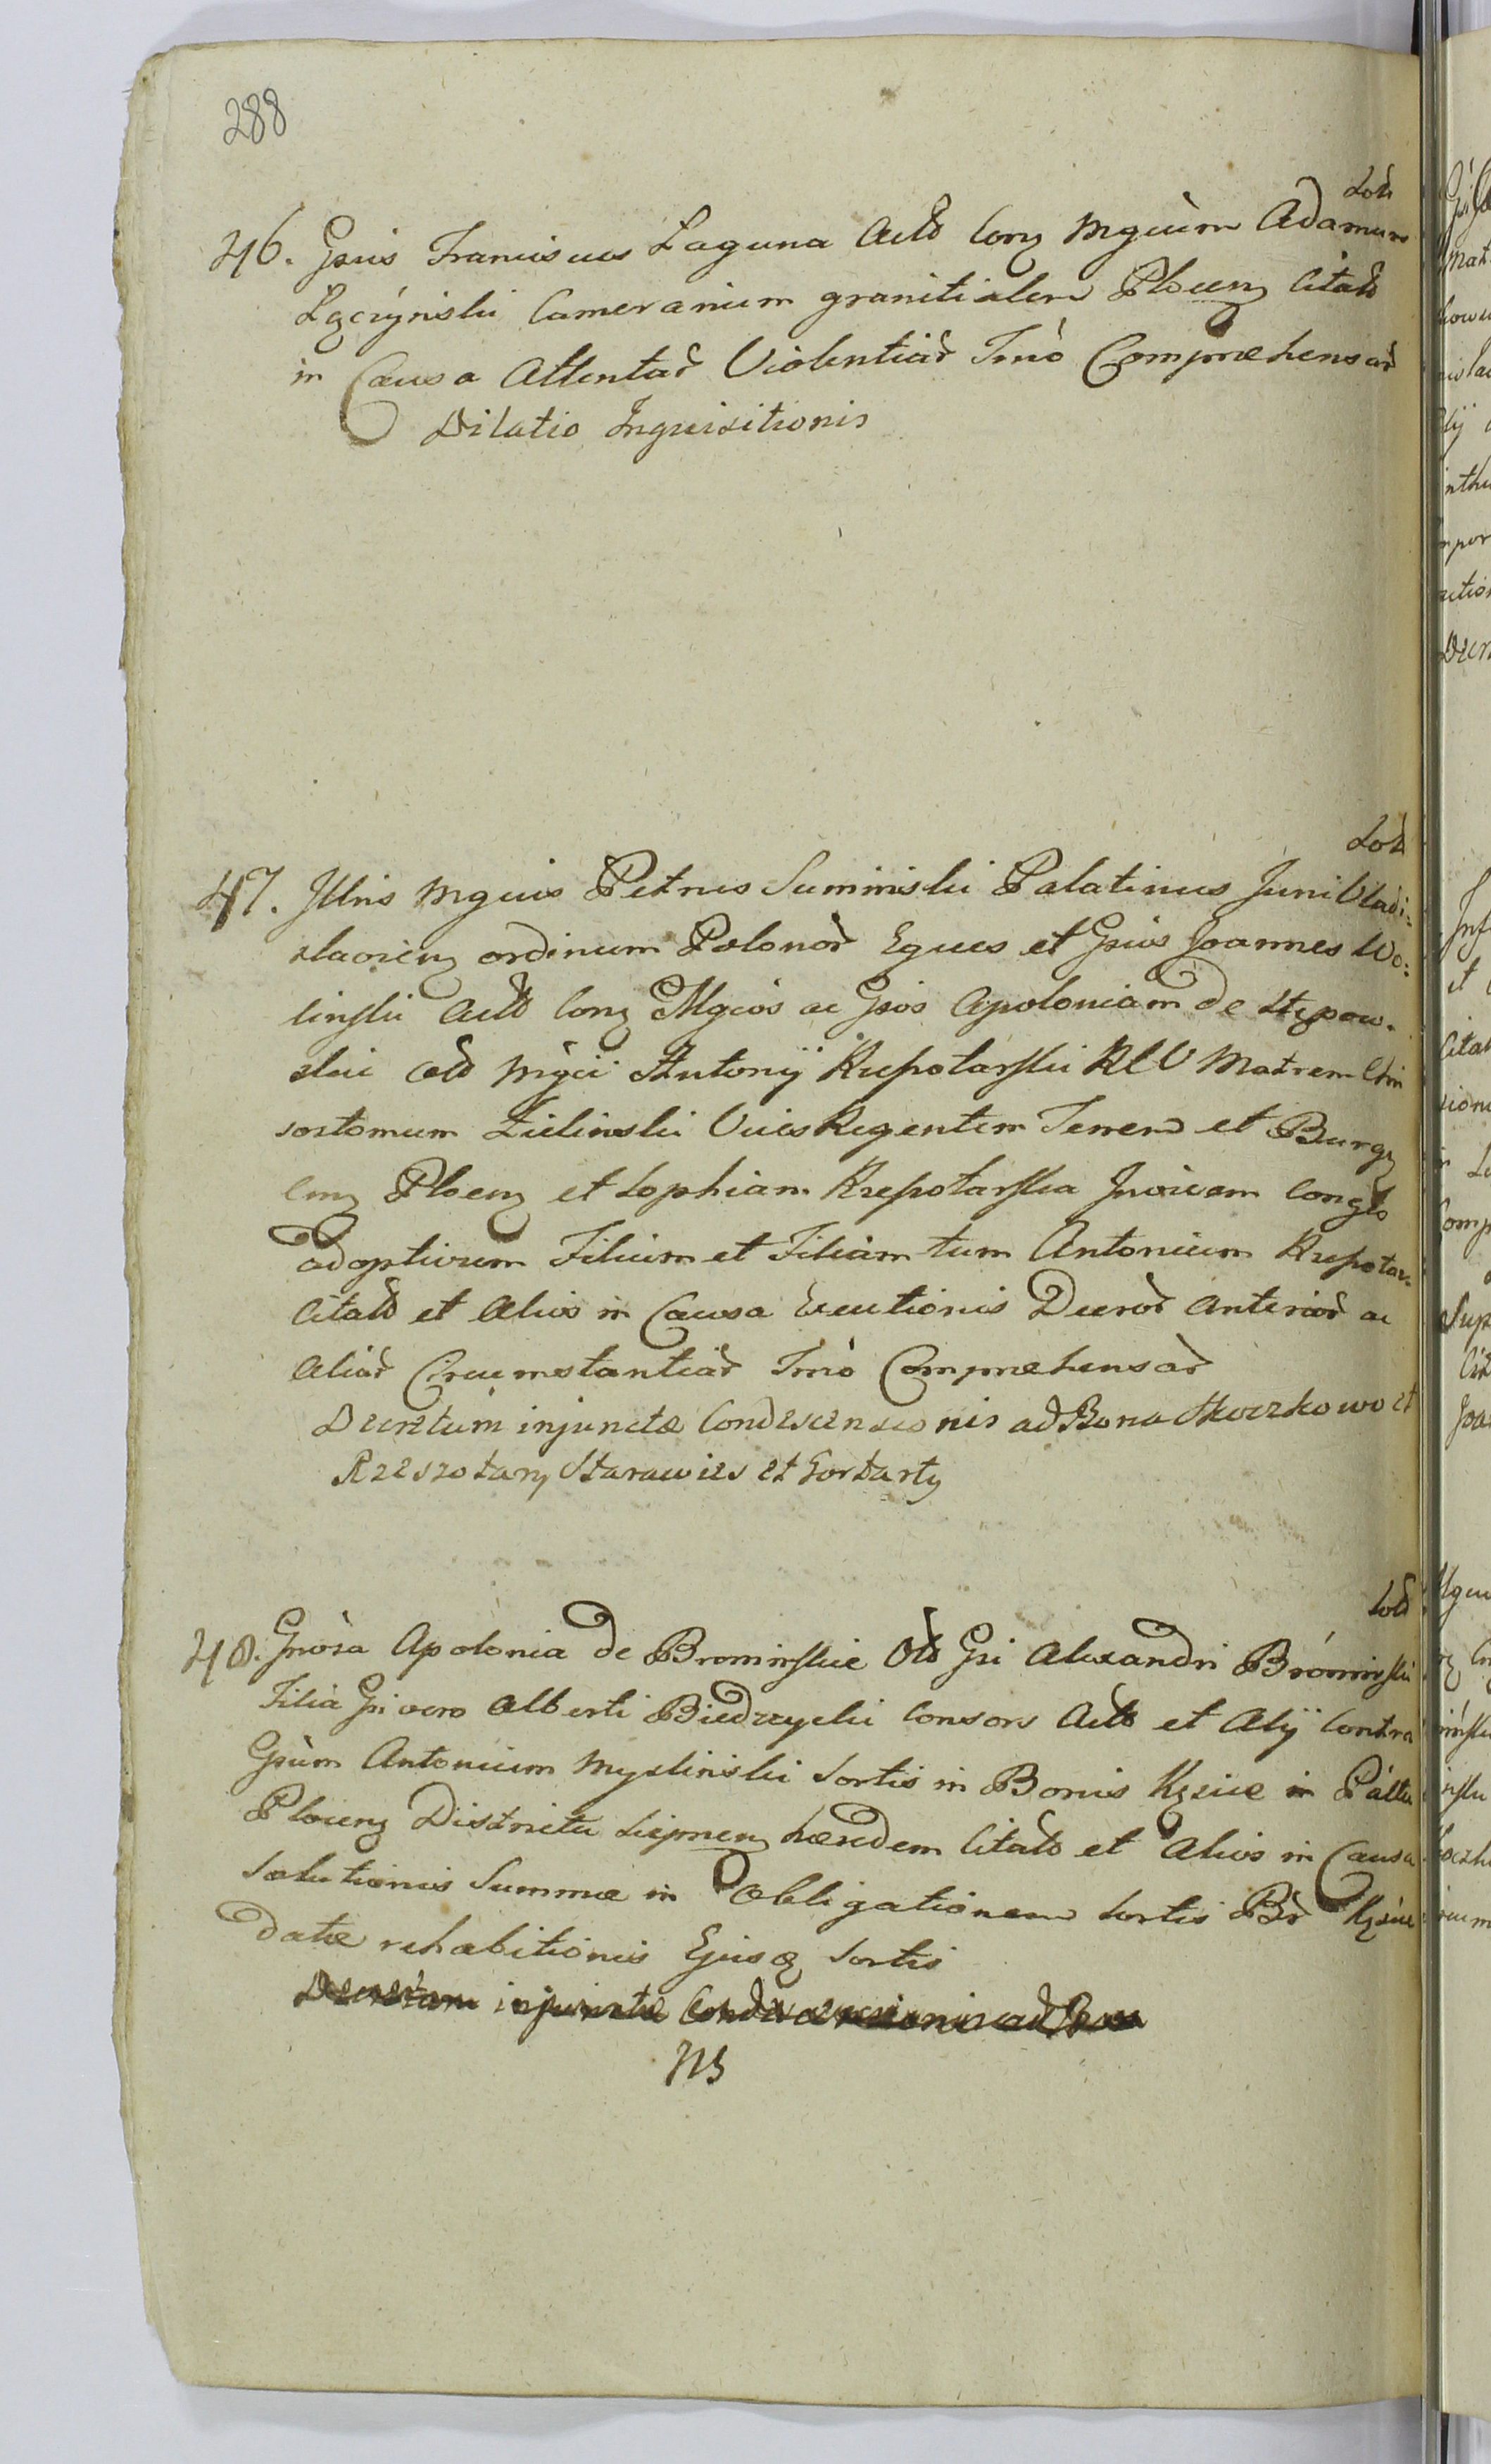 288
46. Gsus Franciscus Laguna Actò Conz Mgcùm Adamum
Łączÿnski Camerarium granitialem Plocenz Citatò
in Causa Attentar Violentiar Tnnò Compraehensar
Dilatio Inquisitionis
47. Jllris Mgcus Petrus Suminski Palatinus JuniVladi:
slaviens ordinum Polonor Eques et Gsus Joannes Wo:
linski Actò Conz Mgcòs ac Gsòs Apoloniam de
skie Mgci Antonÿ Rzeszotarski Matrem
sostomum Zielinski Vices Regentem Terren et Burg
Cenz Plocenz et Sophiam Rzeszotarska
adoptivum Filium et Filiam tum Antonium Rzeszotar.
Citatò et Alios in Causa Executionis Decror Anterior ac
Aliar Circumstantiar Tnnò Compraehensar
Decretum injunctae Condescensionis ad Bona Skoczkowo et
Rzeszotary Starawies et Gortarty
48. Gnòsa Apolonia de Brominskie Gsi Alexandri Brominski
Filia Gsi vero Alberti Biedrzycki Consors Actò et Alÿ Contra
Gsùm Antonium Myslinski Sortis in Bonis Kęsice in Páltu
Plocenz Districtu Siepnenz haeredem Citatò et Alios in Causa
Solutionis Summae in Obligationem Sortis Bò Kęsice
datae rehabitionis Ejusq Sortis
Decretum injunctae Condescensionis ad Bona
NB